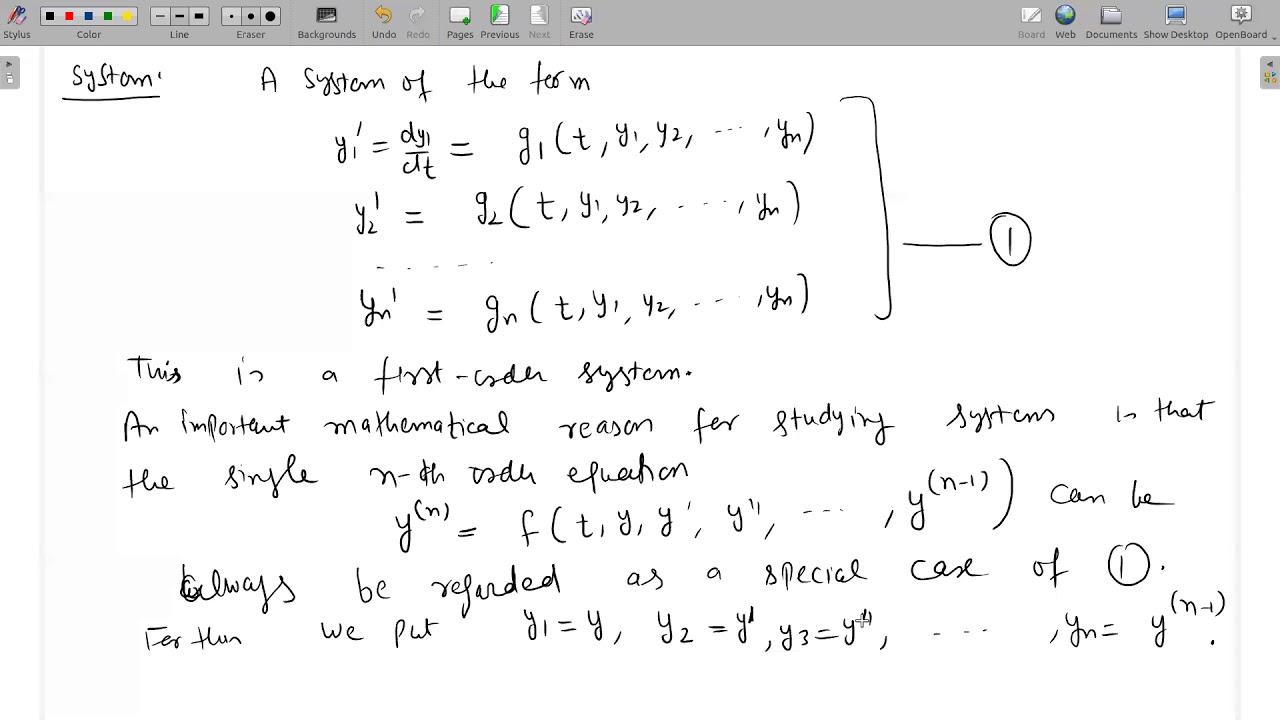 Stylus Color Line Eraser Backgrounds Undo Redo Pages Previous Next Erase Board Web Documents Show Desktop OpenBoard
System: A system of the form
y₁' = dy₁/dt = g₁(t, y₁, y₂, ..., yₙ)
y₂' = g₂(t, y₁, y₂, ....., yₙ)
......
yₙ' = gₙ(t, y₁, y₂, ....., yₙ)
①
This is a first-order system.
An important mathematical reason for studying systems is that
the single n-th order equation
y⁽ⁿ⁾ = f(t, y, y', y'', ...., y⁽ⁿ⁻¹⁾) can be
always be regarded as a special case of ①.
For this we put y₁ = y, y₂ = y', y₃ = y'', ....., yₙ = y⁽ⁿ⁻¹⁾.